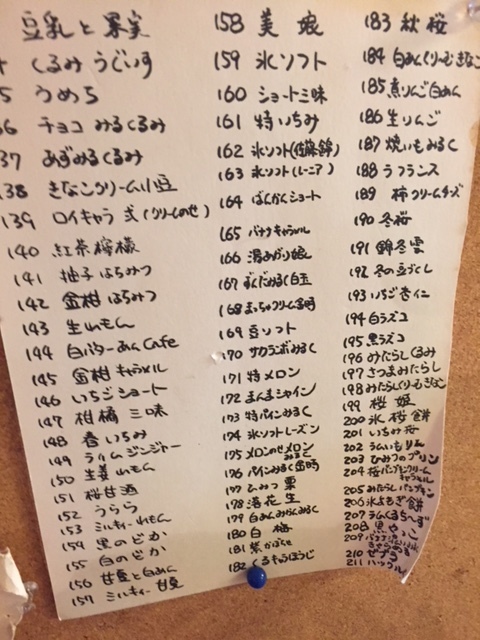 豆乳と果実
くるみ うぐいす
5 うめち
36 チョコ みるくるみ
37 あずみるくるみ
138 きなこクリーム小豆
139 ロイキャラ 弐(クリームのせ)
140 紅茶檸檬
141 柚子はちみつ
142 金柑はちみつ
143 生れもん
144 白バターあんCafe
145 金柑キャラメル
146 いちごショート
147 柑橘三味
148 春いちみ
149 ライムジンジャー
150 生姜れもん
151 桜甘酒
152 うらら
153 ミルキーれもん
154 黒のどか
155 白のどか
156 甘夏と白あん
157 ミルキー甘夏
158 美娘
159 氷ソフト
160 ショート三昧
161 特いちみ
162 氷ソフト(佐藤錦)
163 氷ソフト(レーニア)
164 ばんかんショート
165 バナナキャラメル
166 湯あがり娘
167 ずんだみるく白玉
168 まっちゃクリーム金時
169 豆ソフト
170 サクランボみるく
171 特メロン
172 まんまシャイン
173 特パインみるく
174 氷ソフトレーズン
175 メロンのせメロンみるく
176 パインみるく金時
177 ひみつ栗
178 落花生
179 白あんみかんみるく
180 白梅
181 紫かぼちゃ
182 くるキャラほうじ
183 秋桜
184 白みんくりーむきなこ
185 煮りんご白あん
186 生りんご
187 焼いもみるく
188 ラフランス
189 柿クリームチーズ
190 冬桜
191 錦冬雲
192 冬の豆づくし
193 いちご杏仁
194 白ラズコ
195 黒ラズコ
196 みたらしくるみ
197 さつまみたらし
198 みたらしくりーむきなこ
199 桜姫
200 氷桜餅
201 いちみ桜
202 うみいもりん
203 ひみつのプリン
204 桜パンプキンクリームキャラメル
205 みたらしパンプキン
206 氷よもぎ餅
207 ラムくるちーず
208 黒やっこ
209 バナナ
210 ゼブラ
211 ハックル